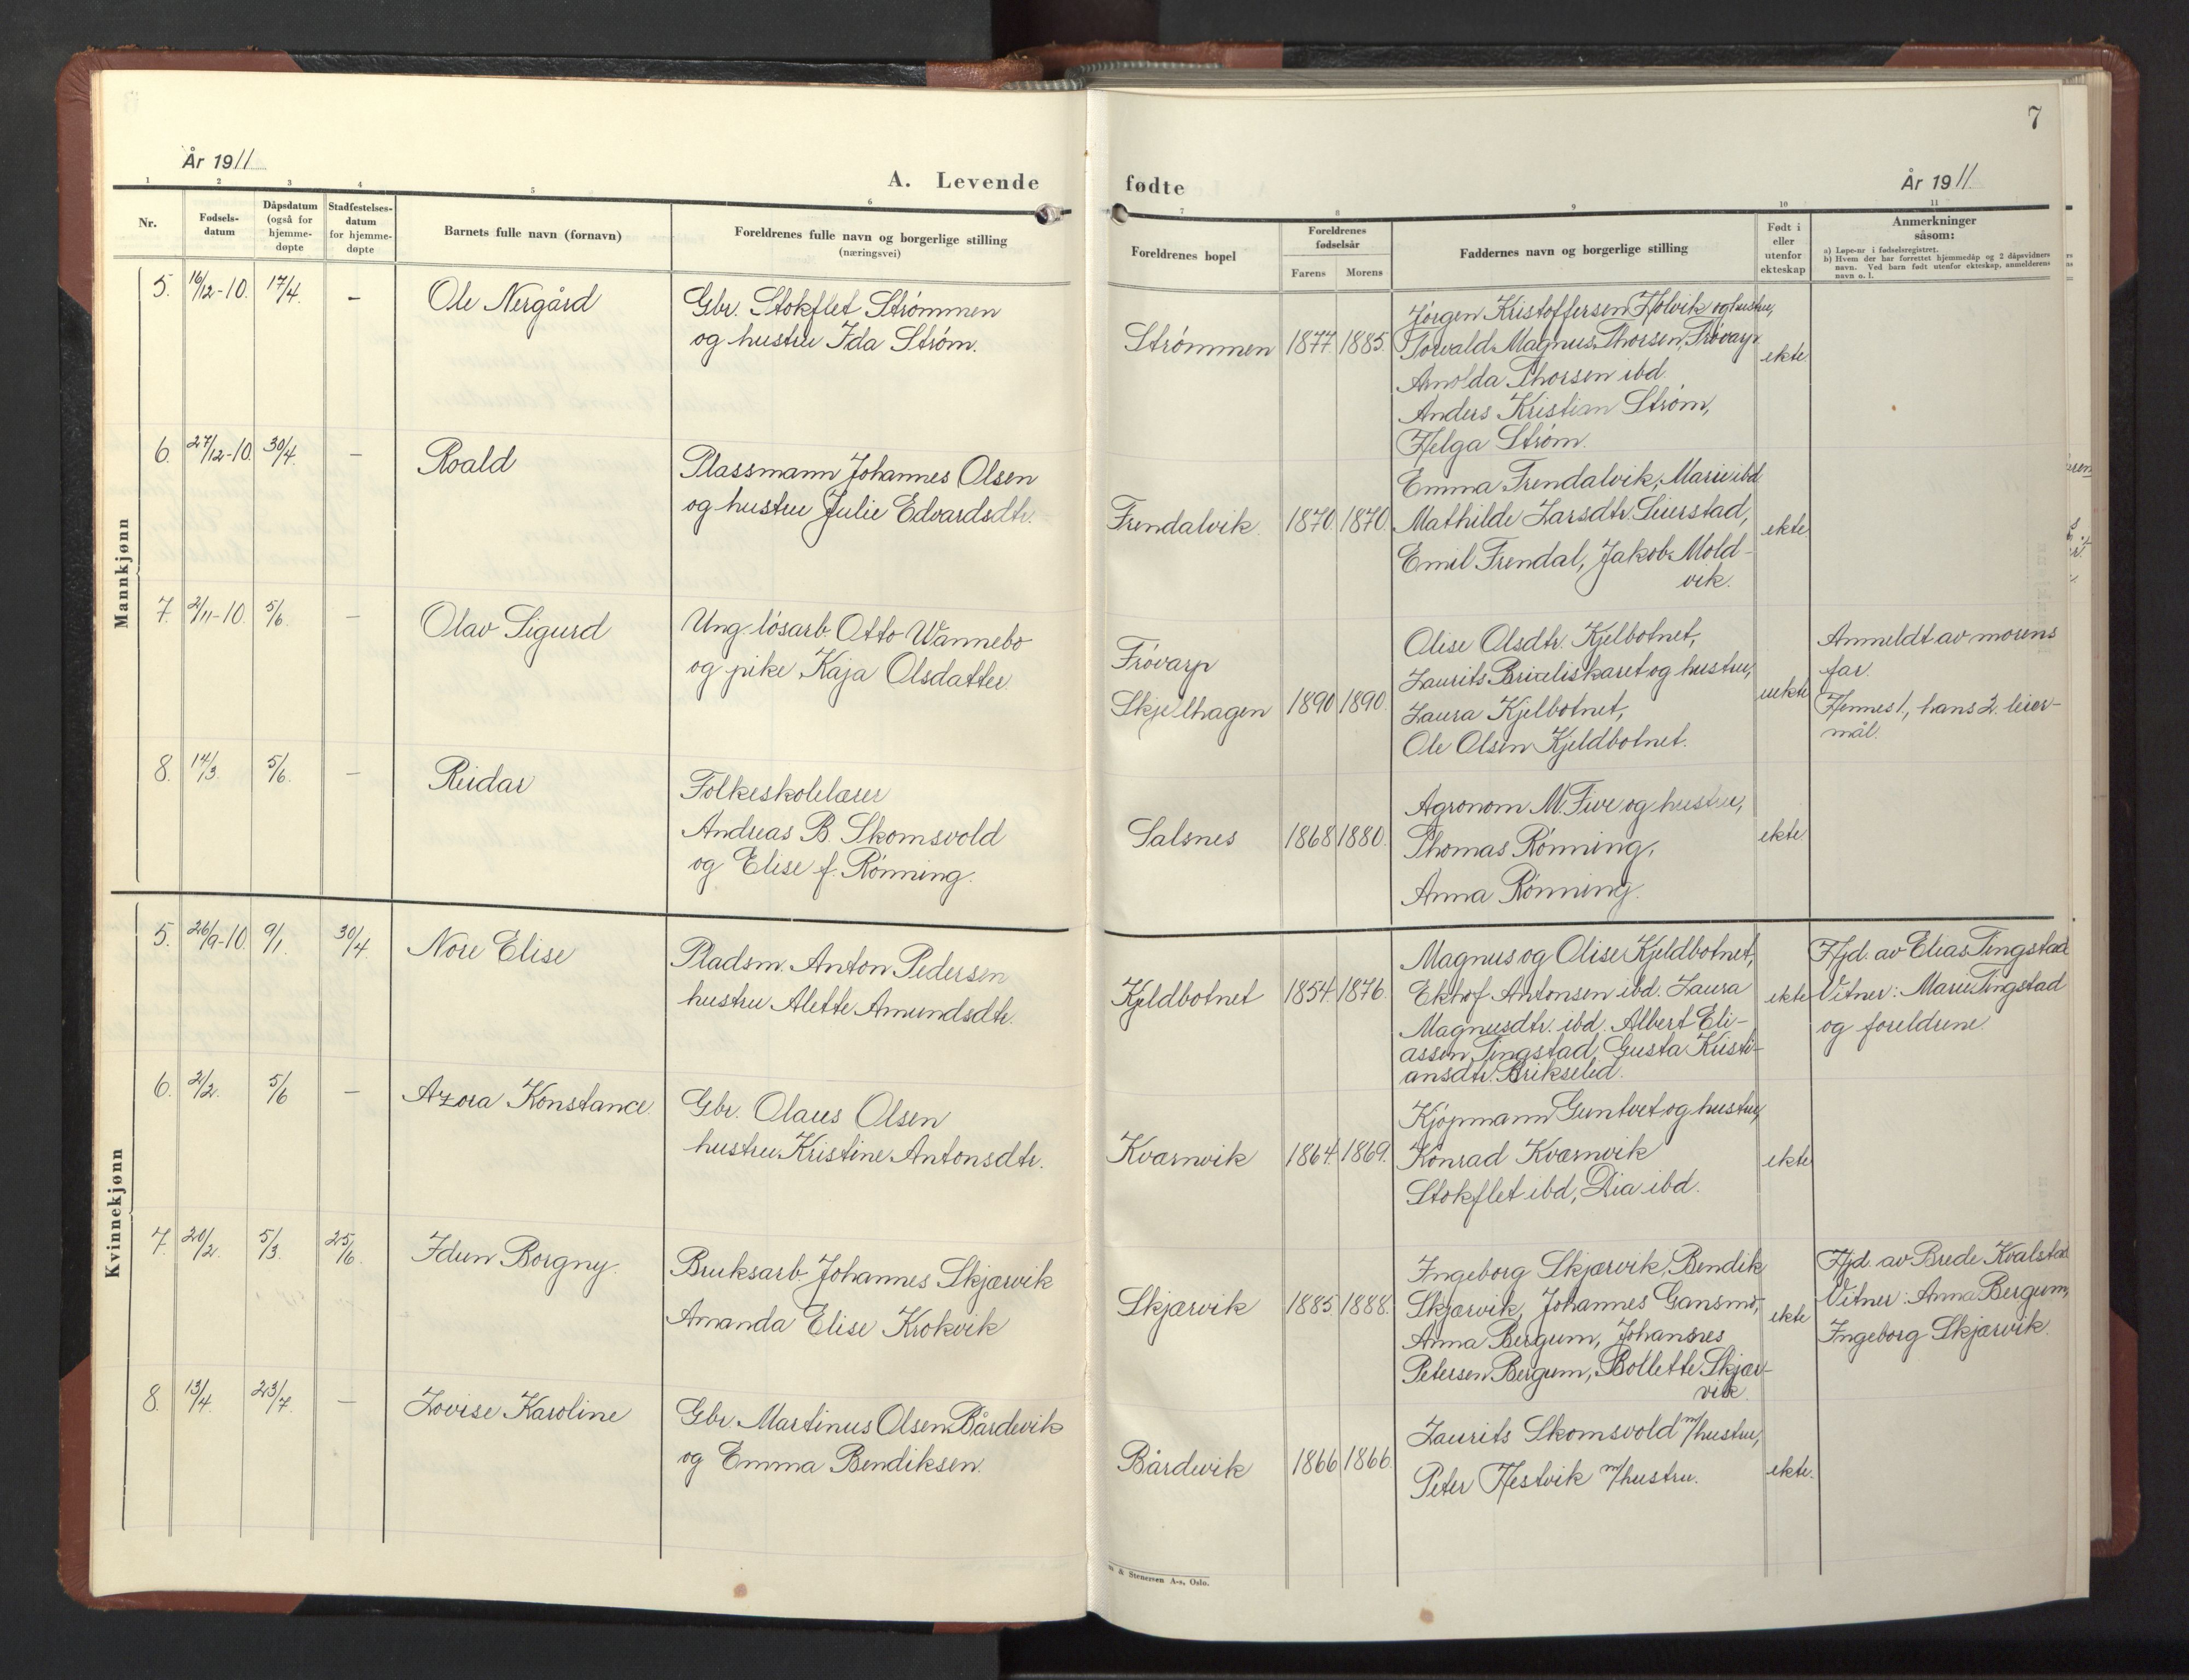 År 1911
A. Levende
1 2 3 4 5 6
Nr.
Fødsels-
datum
Dåpsdatum
(også for
hjemme-
døpte
Stadfestelses-
datum
for hjemme-
døpte
Barnets fulle navn (fornavn)
Foreldrenes fulle navn og borgerlige stilling
(næringsvei)
Mannkjønn
5. 16/12-10. 17/4. – Ole Nergård
Gbr. Stokflet Strømmen
og hustru Ida Strøm.
6. 27/12-10. 30/4. – Roald
Plassmann Johannes Olsen
og hustru Julie Edvardsdtr.
7. 2/11-10. 5/6. – Olav Sigurd
Ung. løsarb. Otto Wannebo
og pike Kaja Olsdatter.
8. 14/3. 5/6. – Reidar
Folkeskolelærer
Andreas B. Skomsvold
og Elise f. Rønning.
Kvinnekjønn
5. 26/9-10. 9/1. 30/4. Nore Elise
Pladsm. Anton Pedersen
hustru Alette Amundsdtr.
6. 2/2. 5/6 – Azora Konstance.
Gbr. Olaus Olsen
hustru Kristine Antonsdtr.
7. 20/2. 5/3. 25/6. Idun Borgny.
Bruksarb. Johannes Skjærvik
Amanda Elise Krokvik
8. 13/4. 23/7. – Lovise Karoline
Gbr. Martinus Olsen Bårdevik
og Emma Bendiksen.
7
fødte
År 1911
7 8 9 10 11
Foreldrenes bopel
Foreldrenes
fødselsår
Farens Morens
Faddernes navn og borgerlige stilling
Født i
eller
utenfor
ekteskap
Anmerkninger
såsom:
a) Løpe-nr i fødselsregistret.
b) Hvem der har forrettet hjemmedåp og 2 dåpsvidners
navn. Ved barn født utenfor ekteskap, anmelderens
navn o. l.
Strømmen 1877. 1885.
Jørgen Kristoffersen Holvik og hustru,
Torvald Magnus Thorsen, Frøvarp
Arnolda Thorsen ibd.
Anders Kristian Strøm,
Helga Strøm.
ekte
Frendalvik. 1870. 1870.
Emma Frendalvik, Marie ibd.
Mathilde Larsdtr. Seierstad,
Emil Frendal, Jakob Mold-
vik.
ekte
Frøvarp
Skjelhagen 1890 1890.
Olise Olsdtr. Kjelbotnet,
Laurits og hustru,
Laura Kjelbotnet,
Ole Olsen Kjeldbotnet.
uekte
Anmeldt av morens
far.
Hennes 1., hans 2. leier-
mål.
Salsnes 1868 1880.
Agronom M. Five og hustru,
Thomas Rønning,
Anna Rønning.
ekte
Kjeldbotnet 1854. 1876.
Magnus og Olise Kjeldbotnet,
Ekhof Antonsen ibd. Laura
Magnusdtr. ibd. Albert Eli-
assen Tingstad, Gusta Kristi-
ansdtr.
ekte
Hjd. av Elias Tingstad
Vitner: Marie Tingstad
og foreldrene.
Kvarnvik 1864. 1869.
Kjøpmann Guntvet og hustru,
Konrad Kvarnvik
Stokflet ibd, Dia ibd.
ekte
Skjærvik 1885. 1888.
Ingeborg Skjærvik, Bendik
Skjærvik, Johannes Gansmo,
Anna Bergum, Johannes
Petersen Bergum, Bollette Skjær-
vik.
ekte
Hjd. av Brede Kvalstad
Vitner: Anna Bergum,
Ingeborg Skjærvik.
Bårdevik 1866 1866.
Laurits Skomsvold m/hustru,
Peter Hestvik m/hustru.
ekte.
& Stenersen A-s, Oslo.